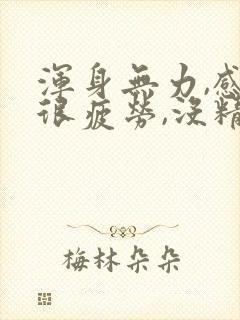 渾身無力,感
很疲勞,沒精
梅林朵朵